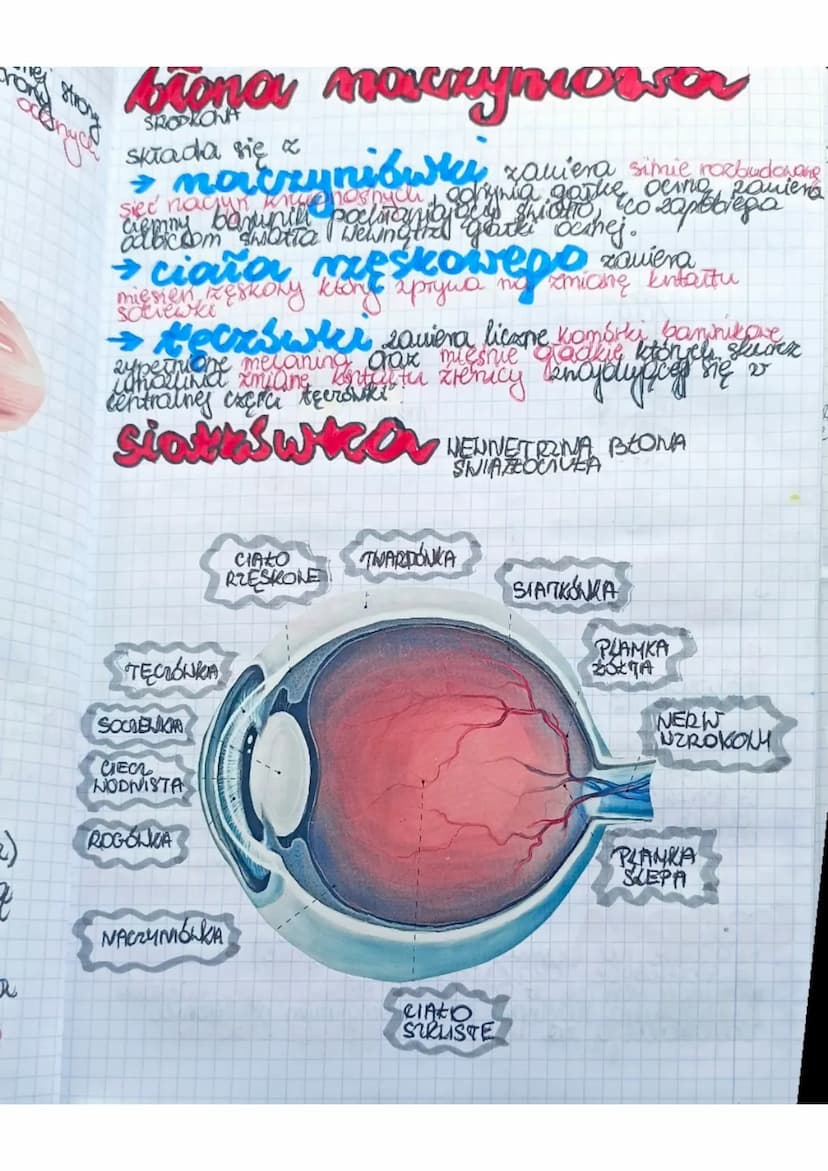 strony
ocznych
błona naczyniowa
ŚRODKOWA
składa się z
→ naczyniówki zawiera silnie rozbudowaną
sieć naczyń krwionośnych, gałkę oczną zawiera
ciemny barwnik pochłaniający światło, co zapobiega
odbiciom światła wewnątrz gałki ocznej.
→ ciała rzęskowego zawiera
mięsień rzęskowy który wpływa na zmianę kształtu
soczewki
→ tęczówki zawiera liczne komórki barwnikowe
wypełnione melaniną oraz mięśnie gładkie których skurcz
umożliwia zmianę kształtu źrenicy znajdującej się w
centralnej części tęczówki
siatkówka WEWNĘTRZNA BŁONA
ŚWIATŁOCZUŁA
CIAŁO
RZĘSKOWE
TWARDÓWKA
SIATKÓWKA
PLAMKA
ŻÓŁTA
TĘCZÓWKA
SOCZEWKA
NERW
WZROKOWY
CIECZ
WODNISTA
ROGÓWKA
PLAMKA
ŚLEPA
NACZYNIÓWKA
CIAŁO
SZKLISTE